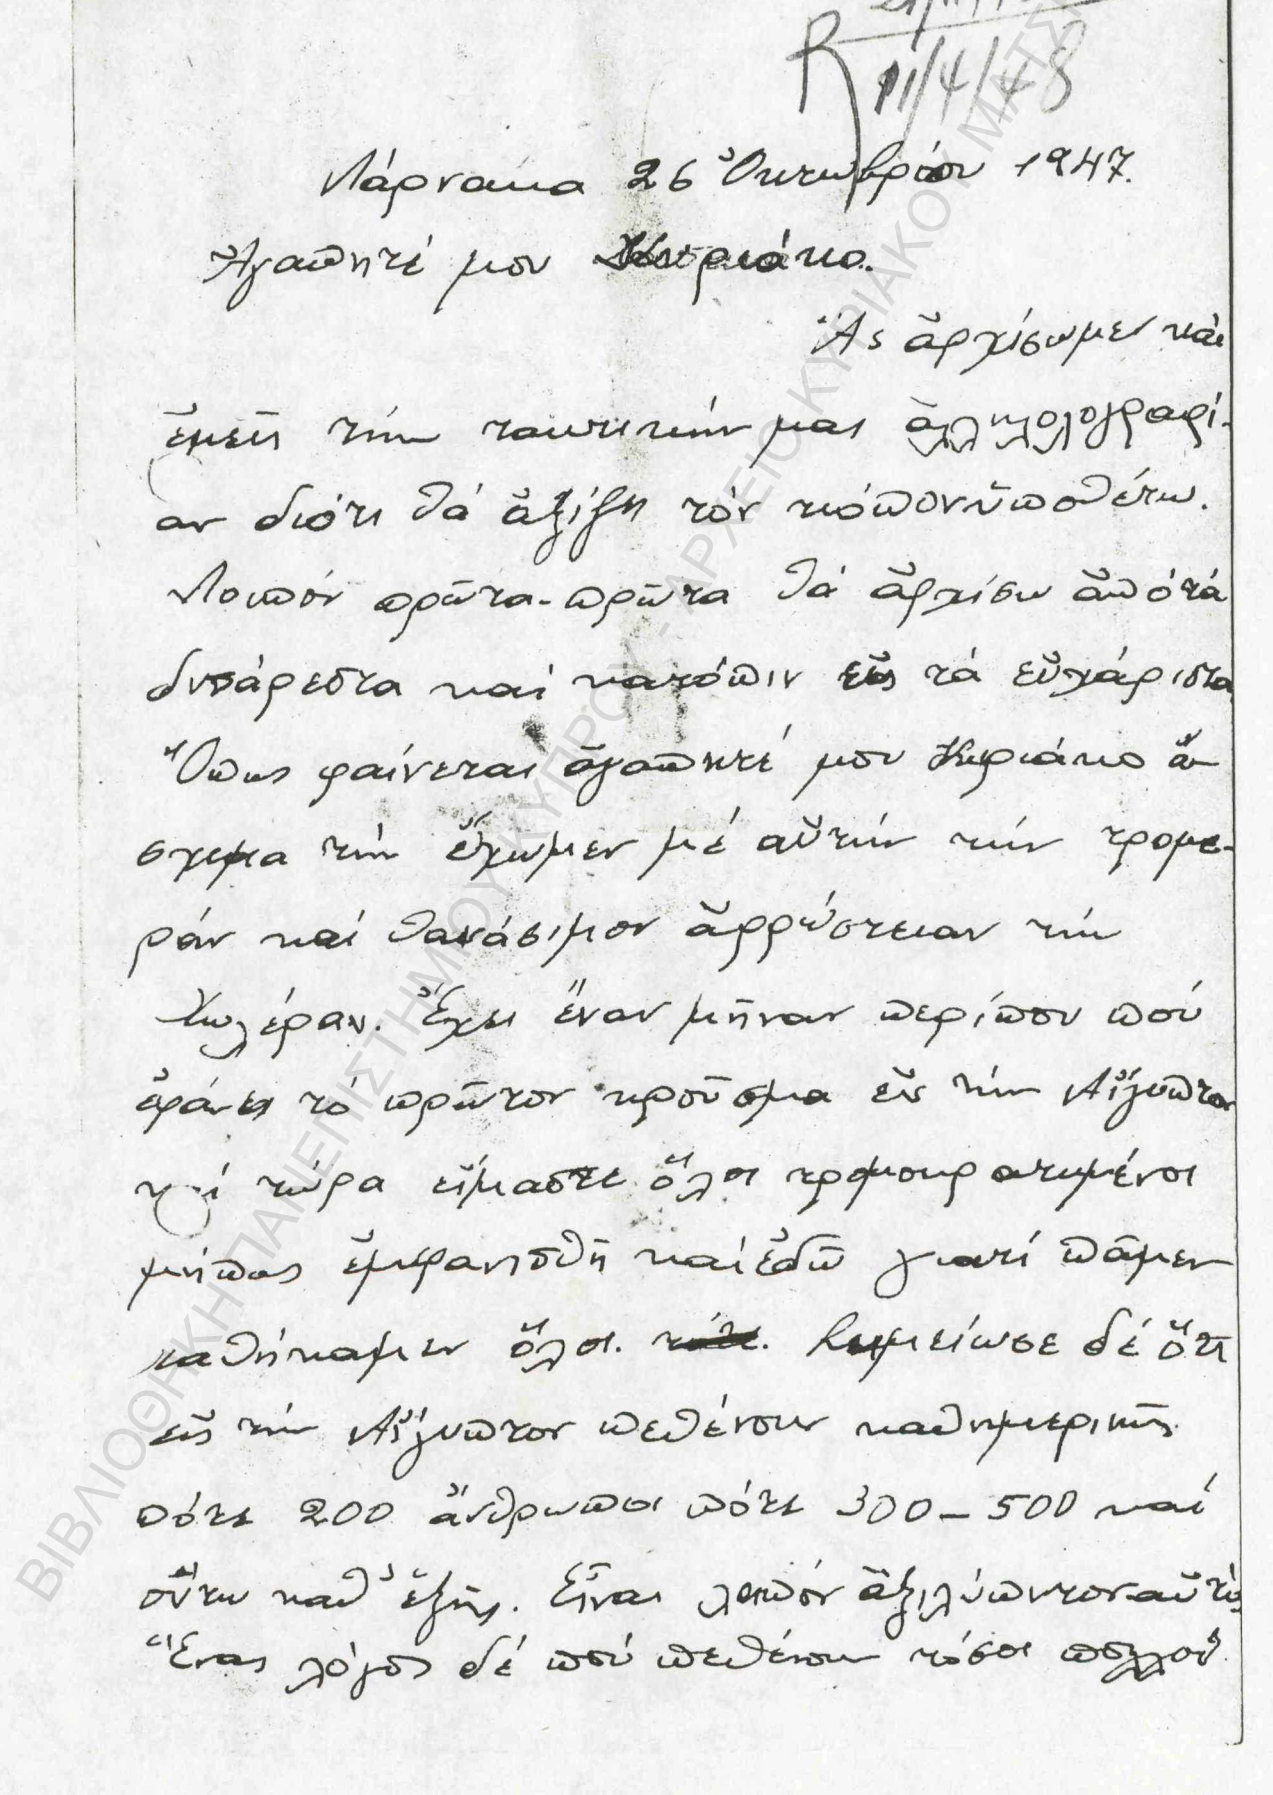 R 11/4/48
Λάρνακα 26 Ὀκτωβρίου 1947.
Ἀγαπητέ μου Κυριάκο.
Ἄς ἄρχίσωμεν και
ἔμεῖς τήν τακτικήν μας ἄλληλολογραφί-
αν διότι θά ἄξίζη τόν κόπον ὕποθέτω.
Λοιπόν πρῶτα-πρῶτα θά ἄρχίσω ἄπό τά
δυσάρεστα καί κατόπιν εἰς τά εὔχάριστα
Ὅπως φαίνεται ἄγαπητέ μου Κυριάκο ἄ-
σχημα τήν ἔχωμεν μέ αὔτήν τήν τρομε-
ράν καί θανάσιμον ἄρρώστειαν τήν
Χωλέραν. Ἔχει ἕναν μῆναν περίπου πού
ἔφάνει τό πρῶτον κροῦσμα εἰς τήν Αἴγυπτον
καί τώρα εἴμαστε ὅλοι τρομοκρατημένοι
μήπως ἔμφανισθῆ καί ἔδῶ γιατί πᾶμεν
χαθήκαμεν ὅλοι. Σημείωσε δέ ὅτι
εἰς τήν Αἴγυπτον πεθένουν καθημερικῶς
πότε 200 ἄνθρωποι πότε 300-500 καί
οὕτω καθ' ἑξῆς. Εἶναι λοιπόν ἄξιλύπητον αὔτό
Ἕνας λόγος δέ πού πεθένουν τόσοι πολλοί
ΒΙΒΛΙΟΘΗΚΗ ΠΑΝΕΠΙΣΤΗΜΙΟΥ ΚΥΠΡΟΥ - ΑΡΧΕΙΟ ΚΥΡΙΑΚΟΥ ΜΑΤΣΗ